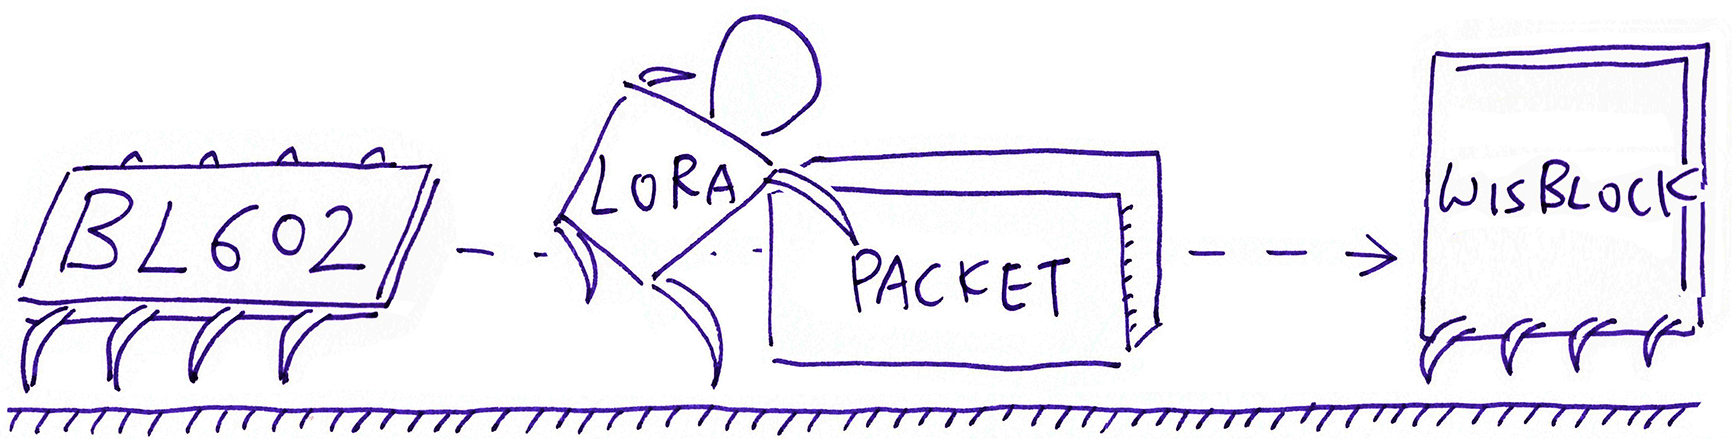 BL602
LORA
PACKET
WISBLOCK